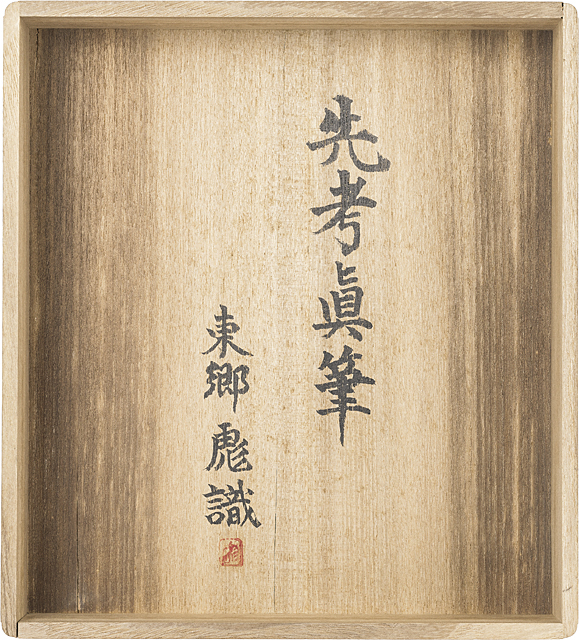 先考眞筆
東郷彪識